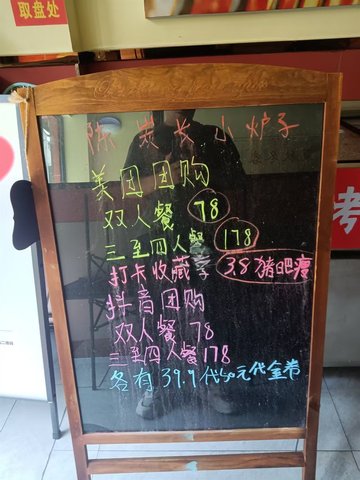 取盘处
陈炭长小炉子
美团团购
双人餐 78
三至四人餐 178
打卡收藏享 3.8猪吧瘦
抖音团购
双人餐 78
三至四人餐178
各有39.9代50元代金券
考